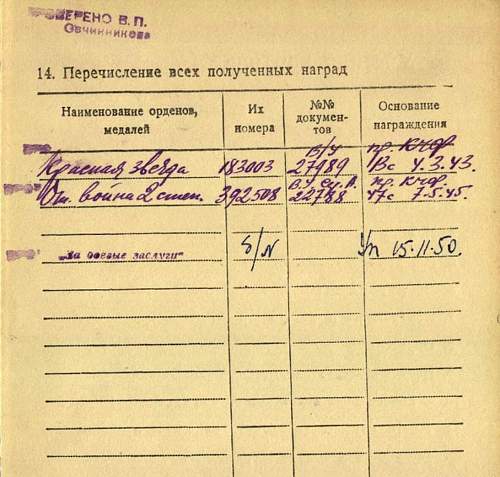 ПРОВЕРЕНО В. П.
Овчинникова
14. Перечисление всех полученных наград
Наименование орденов, медалей
Их номера
№№ документов
Основание награждения
В/Ч пр. КЧФ
Красная звезда 183003 27989 Вс 4.3.43.
пр. КЧФ.
От. война 2 степ. 392508 22788 17с 7.5.45.
"За боевые заслуги" Б/N Ук 15.11.50.